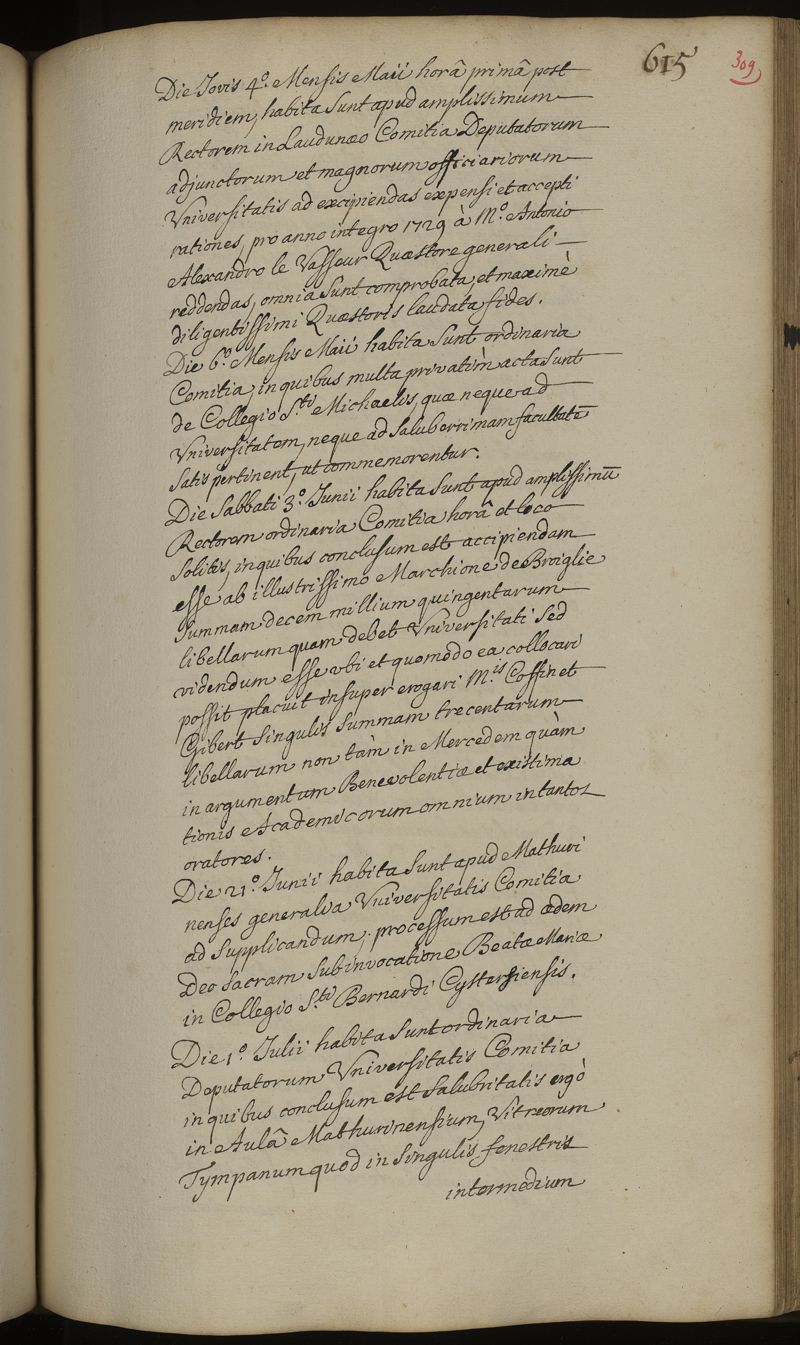 615
309
Die Jovis 4.º Mensis Maii horâ primâ post
meridiem, habita sunt apud amplissimum
Rectorem in Laudunæo Comitia Deputatorum
adjunctorum et magnorum officiariorum
Universitatis ad excipiendas expensi et accepti
rationes, pro anno integro 1729 à M.º Antonio
Alexandro le Vasseur Quæstore generali
reddendas, omnia sunt comprobata, et maximè
diligentissimi Quæstoris laudata fides.
Die 6.º Mensis Maii habita sunt ordinaria
Comitia, in quibus multa privatìm acta sunt
de Collegio S.ti Michaelis, quæ neque ad
Universitatem, neque ad Saluberrimam facultatē
satis pertinent, ut commemorentur.
Die Sabbati 3.º Junii habita sunt apud amplissimū
Rectorem ordinaria Comitia horâ et loco
solitis, in quibus conclusum est accipiendam
esse ab illustrissimo Marchione de Broiglie
summam decem millium quingentarum
libellarum quam debet Universitati sed
videndum esse ubi et quomodo ea collocari
possit placuit insuper erogari M.is Coffin et
Gibert singulis summam trecentarum
libellarum non tàm in Mercedem quàm
in argumentum Benevolentiæ et existima
tionis Academicorum omnium in tantos
oratores.
Die 21.º Junii habita sunt apud Mathuri
nenses generalia Universitatis Comitia
ad supplicandum, processum est ad ædem
Deo sacram sub invocatione Beatæ Mariæ
in Collegio S.ti Bernardi Cysterşiensis.
Die 1.º Julii habita sunt ordinaria
Deputatorum Universitatis Comitia
in quibus conclusum est salubritatis ergò
in Aulâ Mathurinensium, Vitreorum
Tympanum quod in singulis fenestris
intermedium